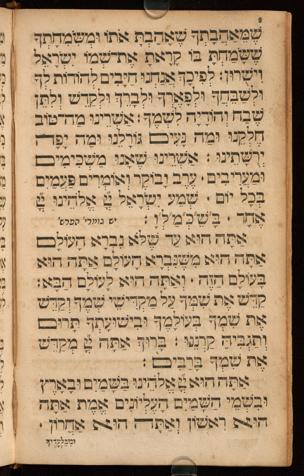 שֶׁמֵּאַהֲבָתְךָ שֶׁאָהַבְתָּ אֹתוֹ וּמִשִּׂמְחָתְךָ
שֶׁשָּׂמַחְתָּ בּוֹ קָרָאתָ אֶת־שְׁמוֹ יִשְׂרָאֵל
וִישֻׁרוּן׃ לְפִיכָךְ אֲנַחְנוּ חַיָּבִים לְהוֹדוֹת לְךָ
וּלְשַׁבֵּחֲךָ וּלְפָאֶרְךָ וּלְבָרֵךְ וּלְקַדֵּשׁ וְלִתֵּן
שֶׁבַח וְהוֹדָיָה לִשְׁמֶךָ׃ אַשְׁרֵינוּ מַה־טּוֹב
חֶלְקֵנוּ וּמַה נָּעִים גּוֹרָלֵנוּ וּמַה יָּפָה
יְרֻשָּׁתֵינוּ׃ אַשְׁרֵינוּ שֶׁאָנוּ מַשְׁכִּימִים
וּמַעֲרִיבִים׃ עֶרֶב וָבוֹקֶר וְאוֹמְרִים פַּעֲמַיִם
בְּכָל יוֹם׃ שְׁמַע יִשְׂרָאֵל יְיָ אֱלֹהֵינוּ יְיָ
אֶחָד׃ בְּשֶׁכְּמַלְוֹ׃
אַתָּה הוּא עַד שֶׁלֹּא נִבְרָא הָעוֹלָם
אַתָּה הוּא מִשֶּׁנִּבְרָא הָעוֹלָם אַתָּה הוּא
בָּעוֹלָם הַזֶּה׃ וְאַתָּה הוּא לָעוֹלָם הַבָּא׃
קַדֵּשׁ אֶת שִׁמְךָ עַל מַקְדִּישֵׁי שְׁמֶךָ וְקַדֵּשׁ
אֶת שִׁמְךָ בְּעוֹלָמֶךָ וּבִישׁוּעָתְךָ תָּרוּם
וְתַגְבִּיהַּ קַרְנֵנוּ׃ בָּרוּךְ אַתָּה יְיָ מְקַדֵּשׁ
אֶת שִׁמְךָ בָּרַבִּים׃
אַתָּה הוּא יְיָ אֱלֹהֵינוּ בַּשָּׁמַיִם וּבָאָרֶץ
וּבִשְׁמֵי הַשָּׁמַיִם הָעֶלְיוֹנִים אֱמֶת אַתָּה
הוּא רִאשׁוֹן וְאַתָּה הוּא אַחֲרוֹן׃
ומבלעדיך